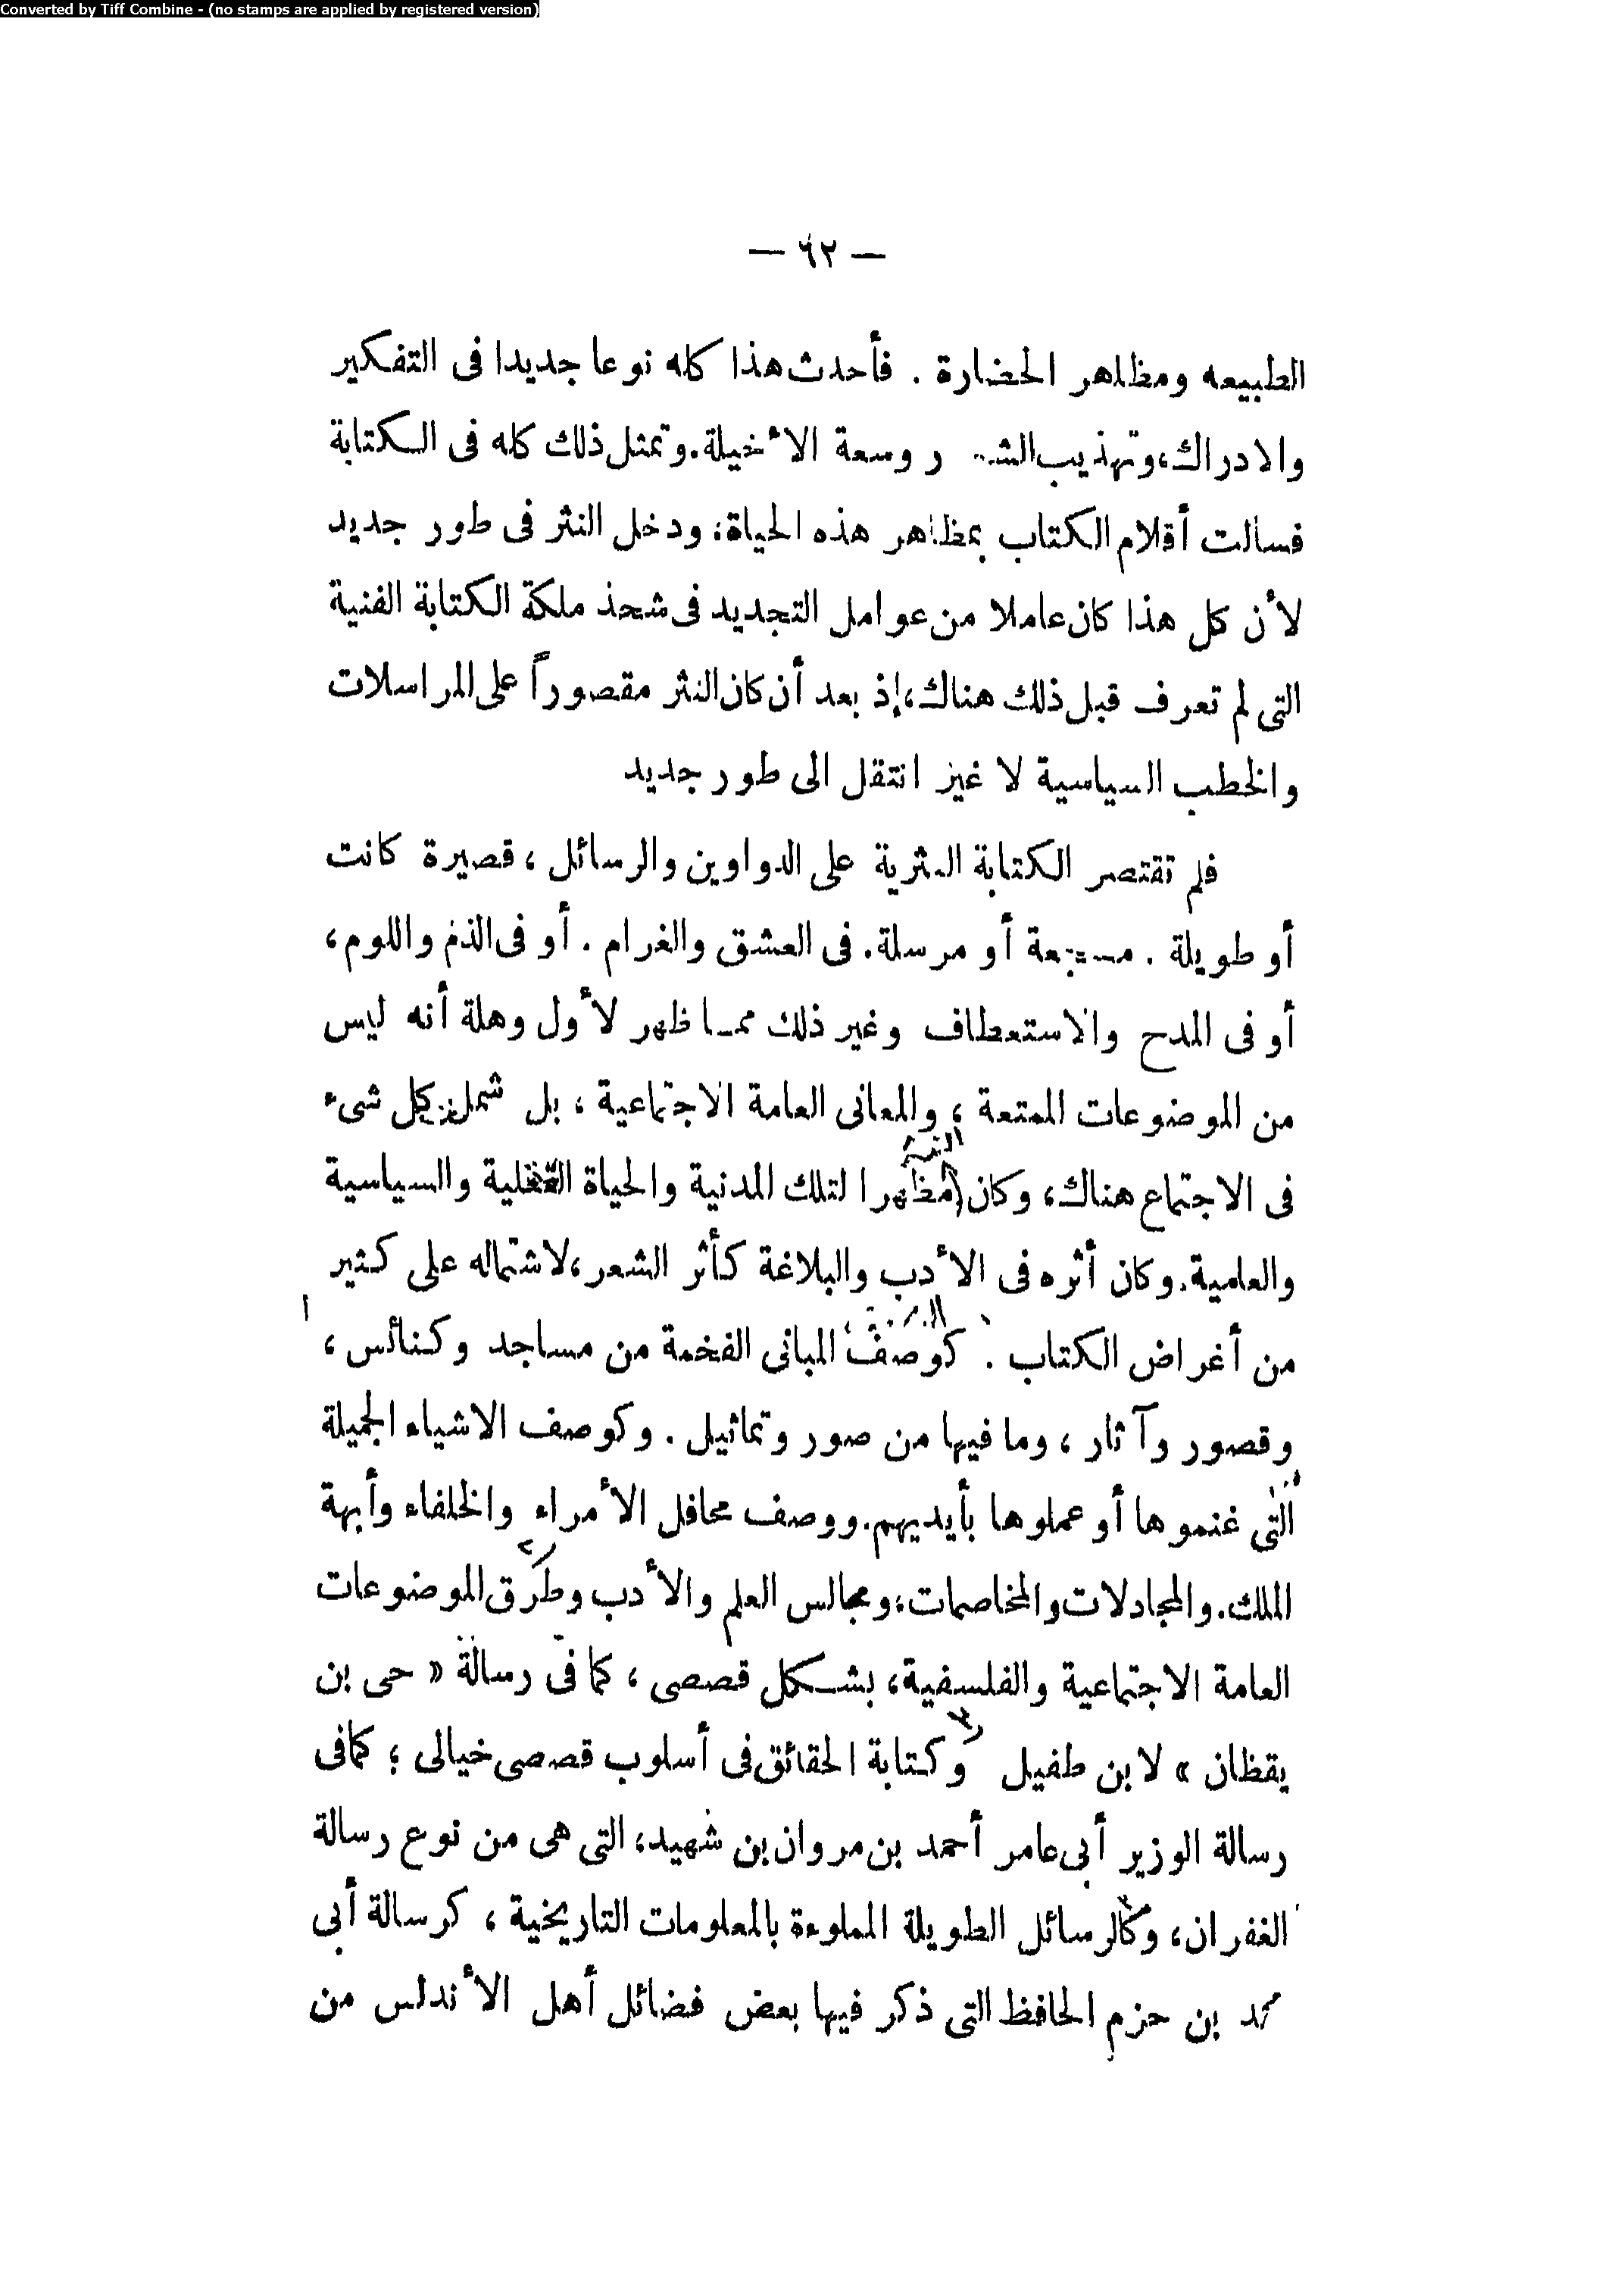 Converted by Tiff Combine - (no stamps are applied by registered version)
— ٦٢ —
الطبيعه ومظاهر الحضارة . فأحدث هذا كله نوعا جديدا فى التفكير
والادراك، وتهذيب ر وسعة الأخيلة. وتمثل ذلك كله فى الكتابة
فسالت أقلام الكتاب بمظاهر هذه الحياة، ودخل النثر فى طور جديد
لأن كل هذا كان عاملا من عوامل التجديد فى شحذ ملكة الكتابة الفنية
التى لم تعرف قبل ذلك هناك، إذ بعد أن كان النثر مقصوراً على المراسلات
والخطب السياسية لا غير انتقل الى طور جديد
فلم تقتصر الكتابة النثرية على الدواوين والرسائل ، قصيرة كانت
أو طويلة . مسجعة أو مرسلة. فى العشق والغرام . أو فى الذم واللوم ،
أو فى المدح والاستعطاف وغير ذلك ممـا ظهر لأول وهلة أنه ليس
من الموضوعات الممتعة ، والمعانى العامة الاجتماعية ، بل شملت كل شىء
فى الاجتماع هناك، وكان النثر مظهرا لتلك المدنية والحياة العقلية والسياسية
والعامية. وكان أثره فى الأدب والبلاغة كأثر الشعر، لاشتماله على كثير
من أغراض الكتاب . كوصف المبانى الفخمة من مساجد وكنائس ،
وقصور وآثار ، وما فيها من صور وتماثيل . وكوصف الاشياء الجميلة
التى غنموها أو عملوها بأيديهم. ووصف محافل الأمراء والخلفاء وأبهة
الملك. والمجادلات والمخاصمات، ومجالس العلم والأدب وطرق الموضوعات
العامة الاجتماعية والفلسفية، بشكل قصصى ، كما فى رسالة « حى بن
يقظان » لابن طفيل وكتابة الحقائق فى أسلوب قصصى خيالى ؛ كما فى
رسالة الوزير أبى عامر أحمد بن مروان بن شهيد، التى هى من نوع رسالة
الغفران، وكالرسائل الطويلة المملوءة بالمعلومات التاريخية ، كرسالة أبى
محمد بن حزم الحافظ التى ذكر فيها بعض فضائل أهل الأندلس من